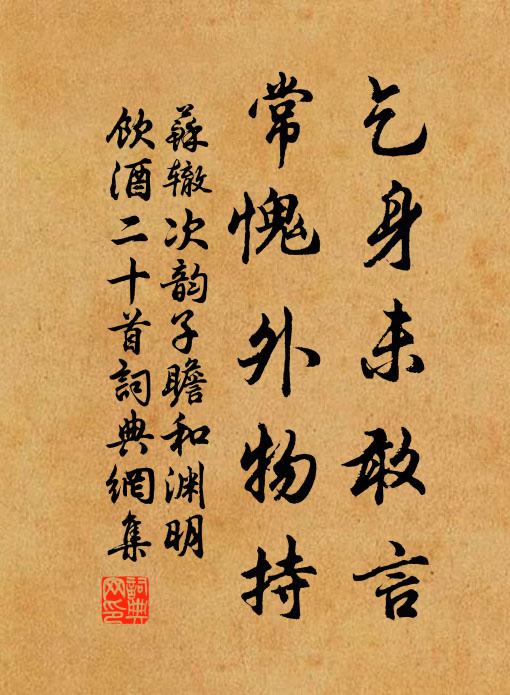 乞身未敢言
常愧外物持
蘇辙次韵子瞻和渊明
飲酒二十首詞典網集
詞典网印